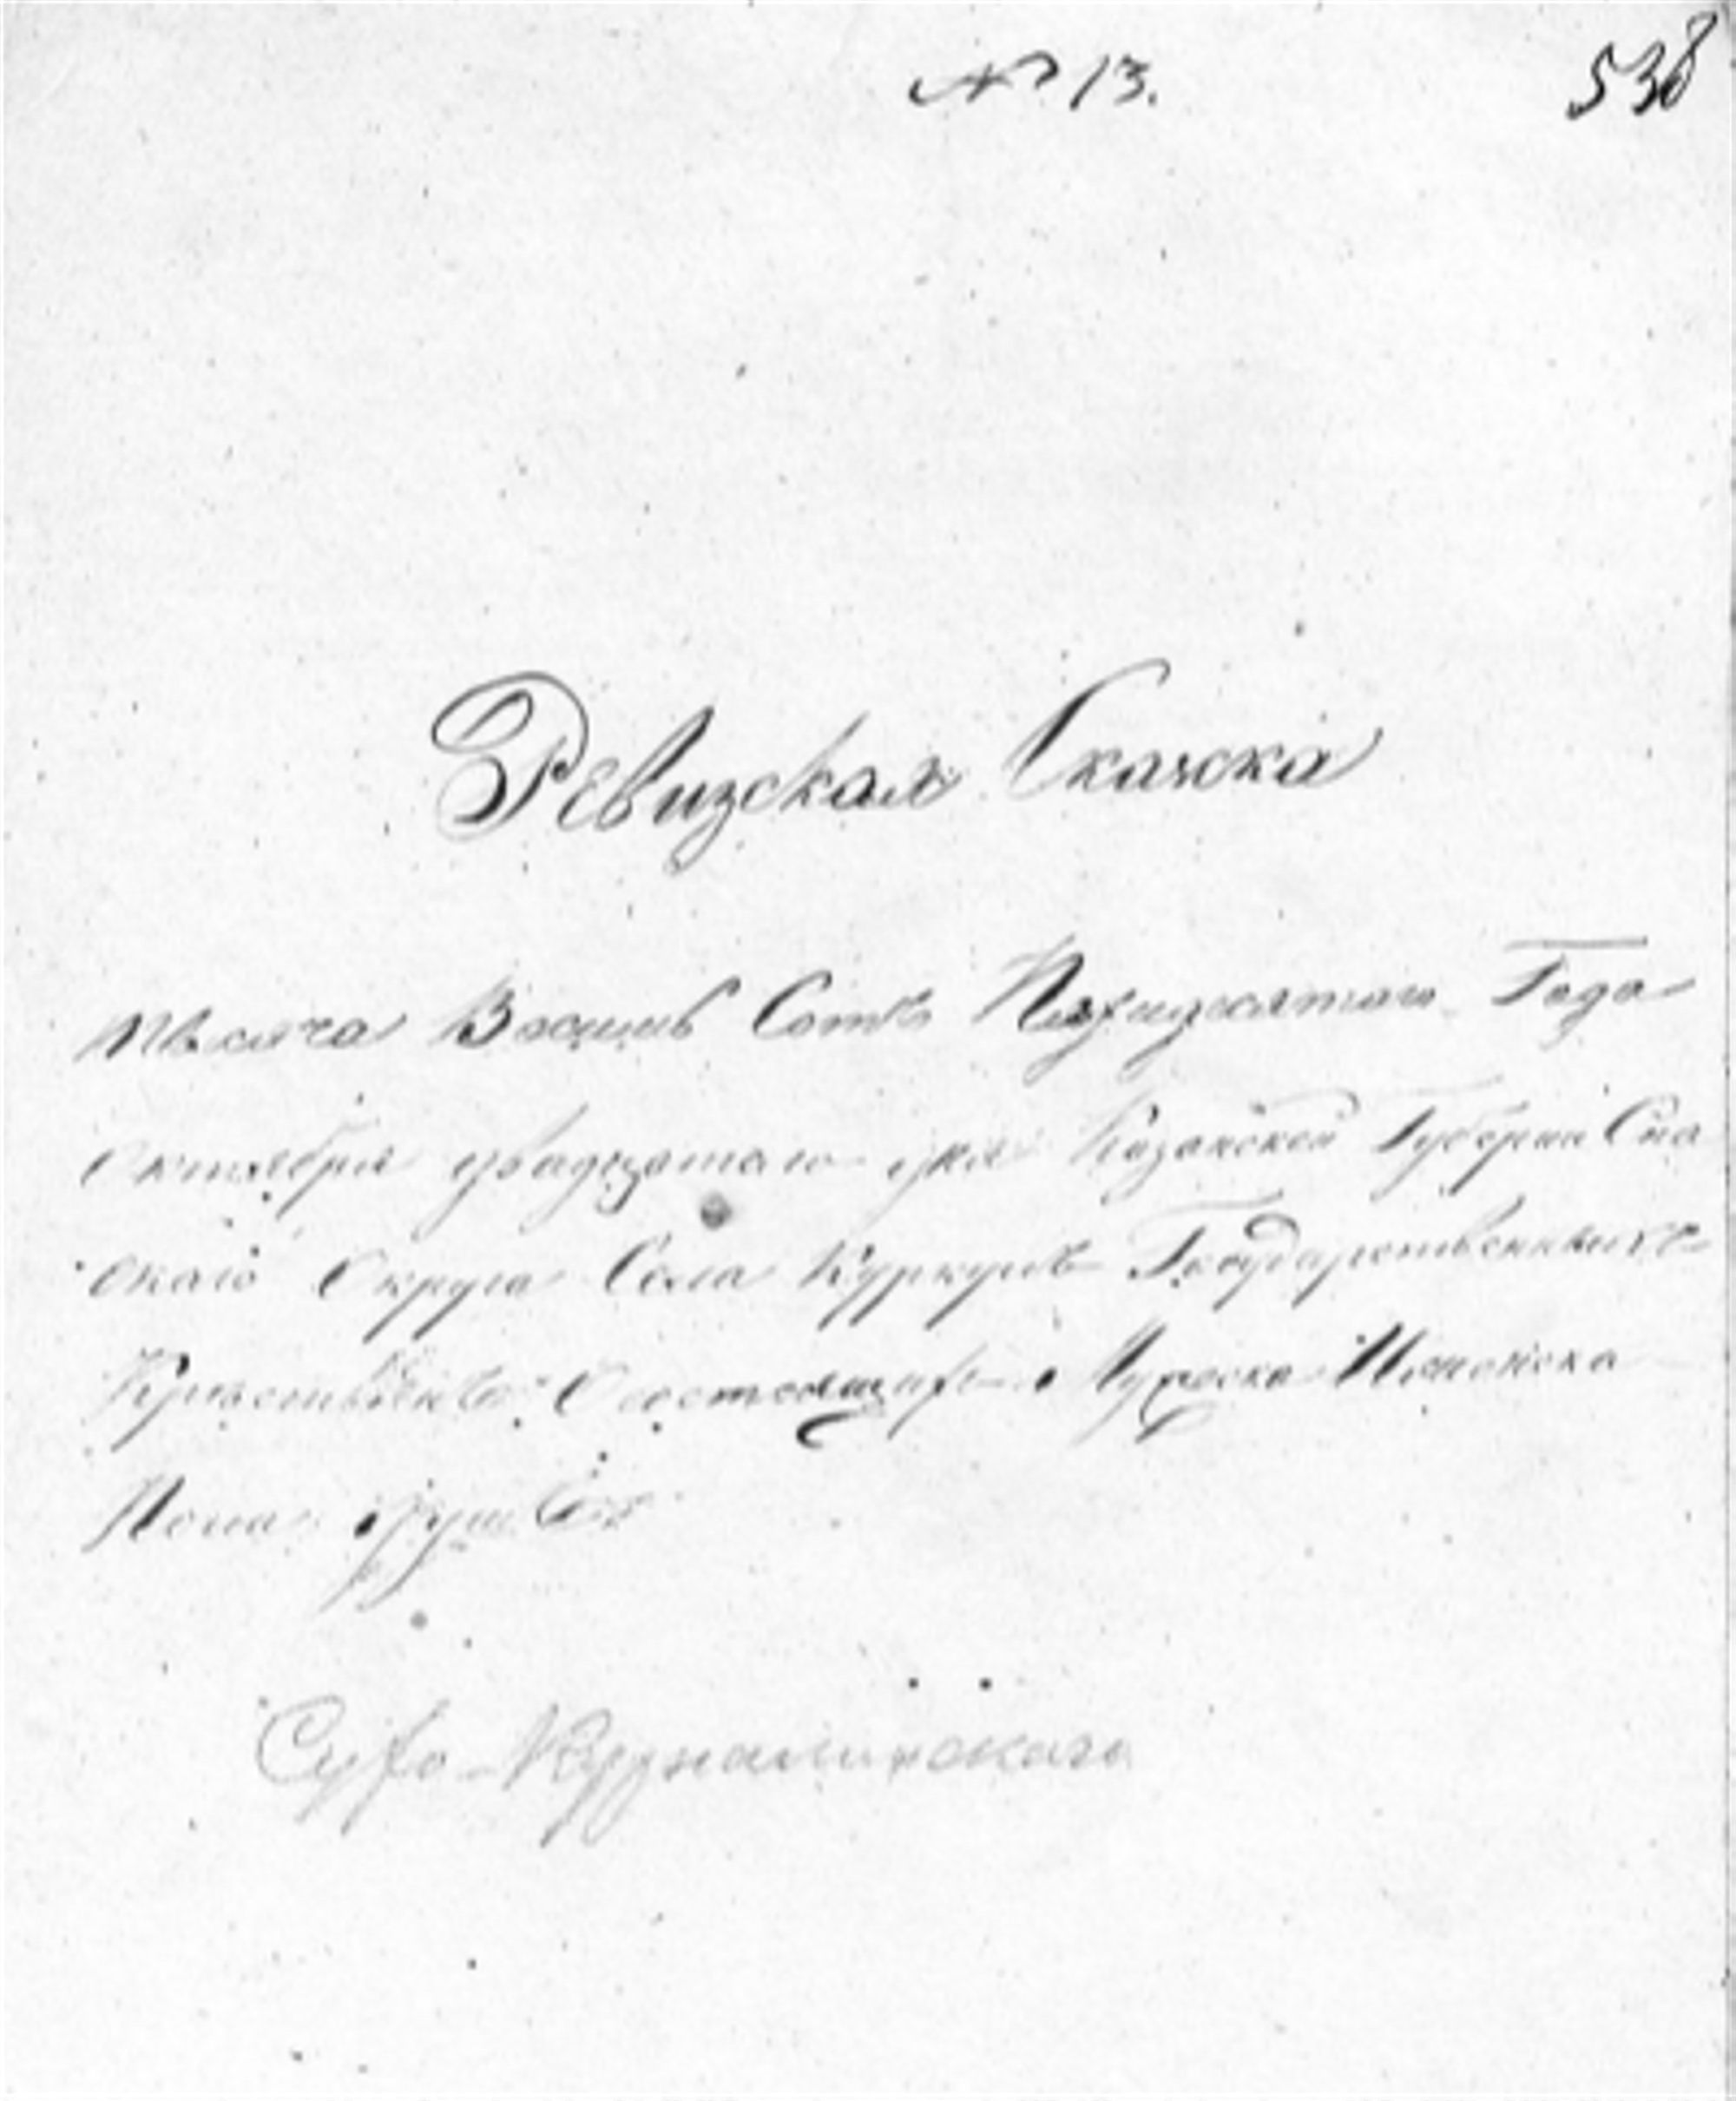 № 13. 538
Ревизская Скаска
Тысяча Восимь Сотъ Пятидесятаго Года
Октября двадцатаго дня Казанской Губернии Спа
скаго Округа Села Куркуль Государственныхъ
Крестьянъ Состоящихъ Мужеска И женска
Пола душъ
Сухо-Куркалинскаго